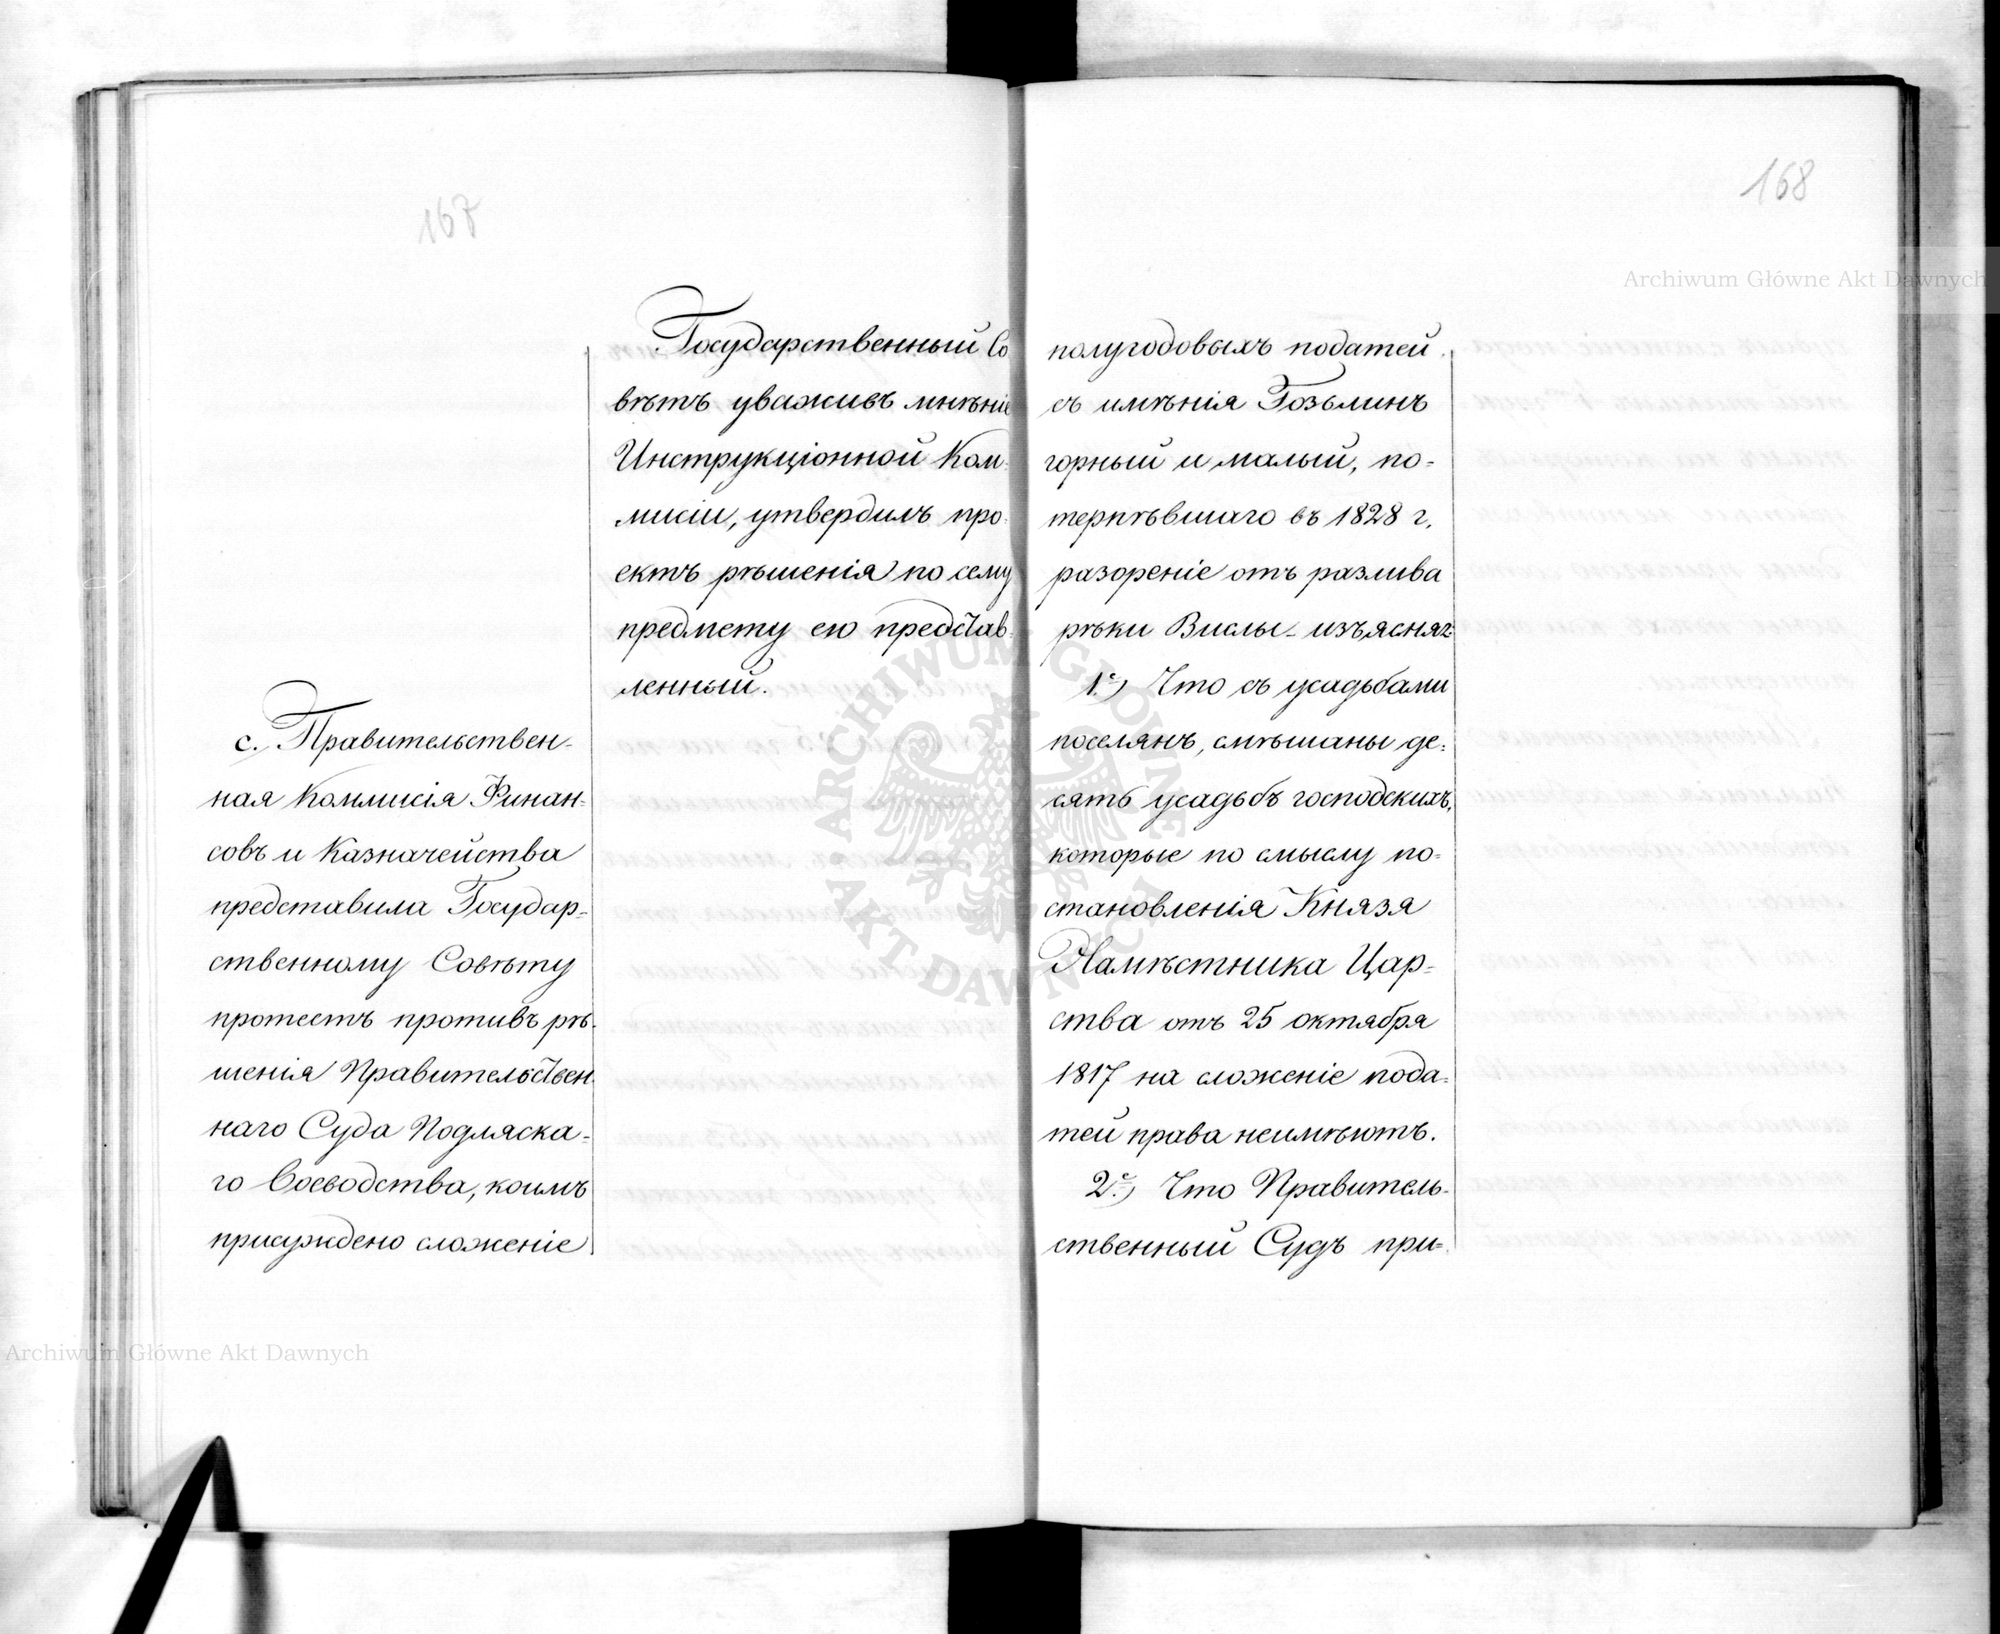 167
Государственный Со
вѣтъ уваживъ мнѣніе
Инструкціонной Ком-
мисіи, утвердилъ про-
ектъ рѣшенія по сему
предмету ею представ-
ленный.
с. Правительствен-
ная Коммисія Финан-
совъ и Казначейства
представила Государ-
ственному Совѣту
протестъ противъ рѣ-
шенія Правительствен-
наго Суда Подляска-
го Воеводства, коимъ
присуждено сложеніе
168
полугодовыхъ податей
съ имѣнія Гозьлинъ
горный и малый, по-
терпѣвшаго въ 1828 г.
разореніе отъ разлива
рѣки Вислы - изъясняя:
1.е) Что съ усадьбами
поселянъ, смѣшаны де-
сять усадьбъ господскихъ,
которые по смыслу по-
становленія Князя
Намѣстника Цар-
ства отъ 25 октября
1817 на сложеніе пода-
тей права неимѣютъ.
2.е) Что Правитель-
ственный Судъ при-
Archiwum Główne Akt Dawnych
Archiwum Główne Akt Dawnych
ARCHIWUM GŁÓWNE AKT DAWNYCH